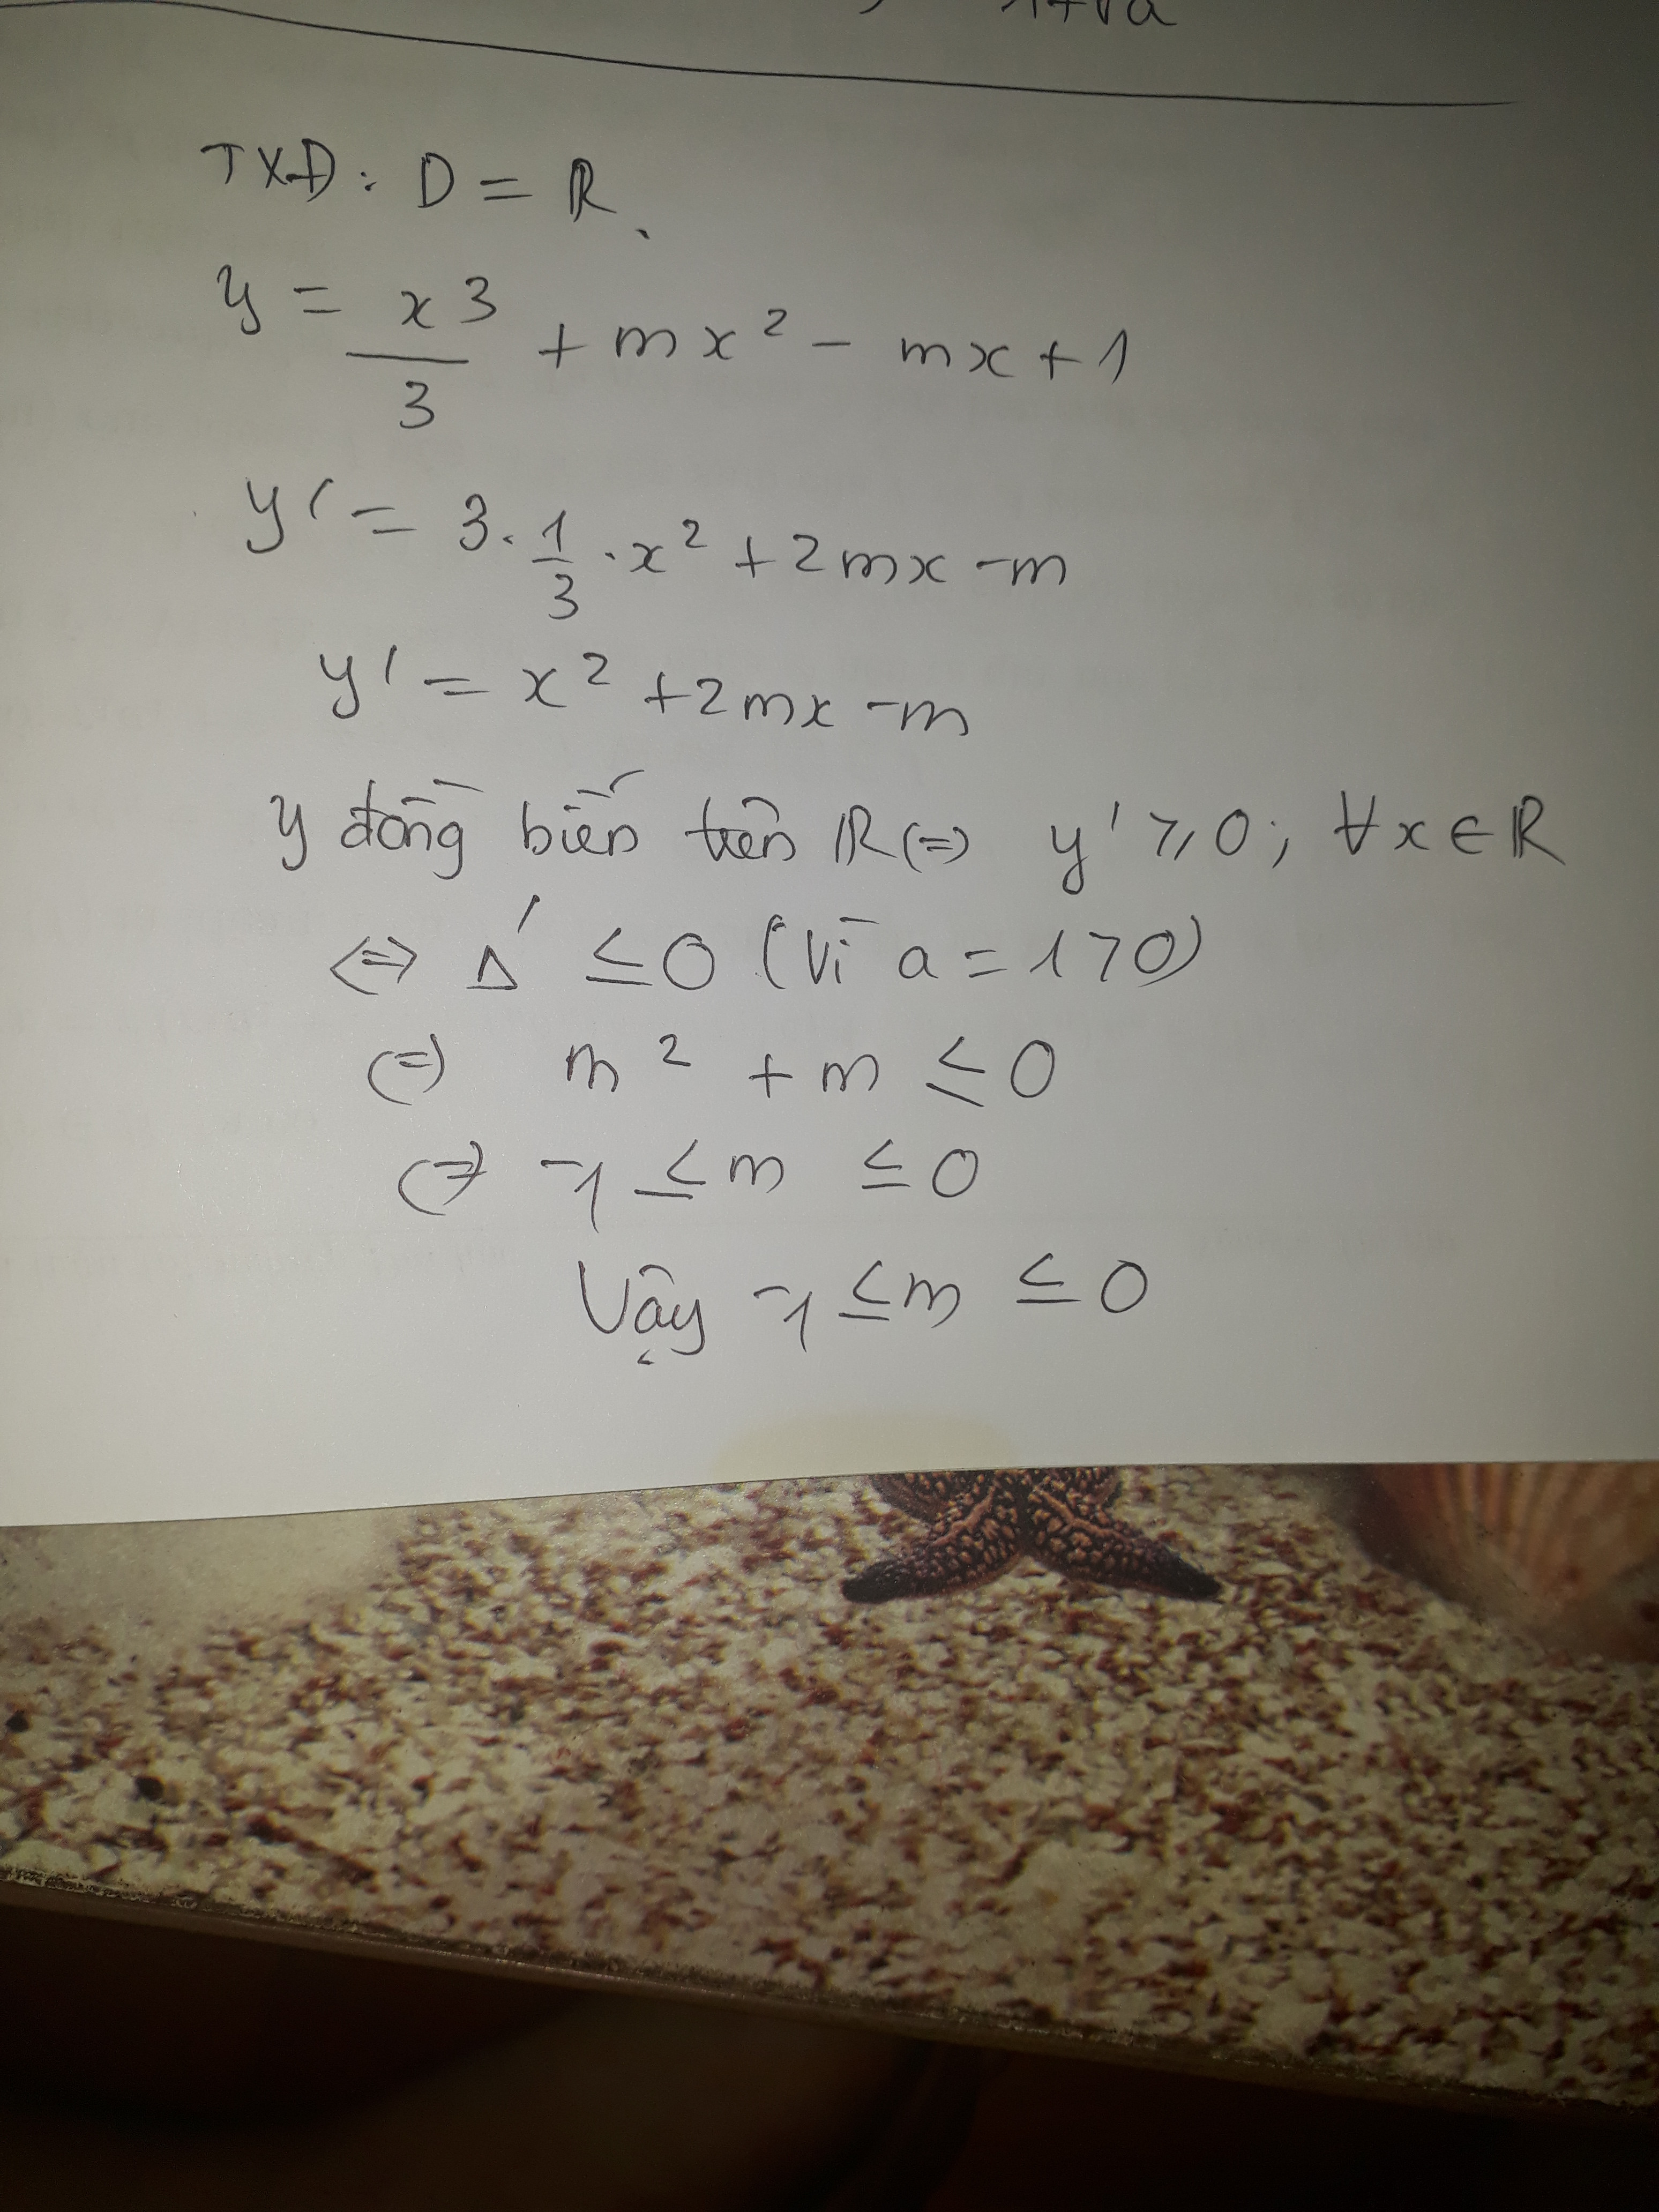 1+√a
TXĐ: D = ℝ.
y = x³/3 + mx² - mx + 1
y' = 3. 1/3 . x² + 2mx - m
y' = x² + 2mx - m
y đồng biến trên ℝ (=) y' ≥ 0; ∀x ∈ ℝ
<=> Δ' ≤ 0 (Vì a = 1 > 0)
(=) m² + m ≤ 0
(=) -1 ≤ m ≤ 0
Vậy -1 ≤ m ≤ 0